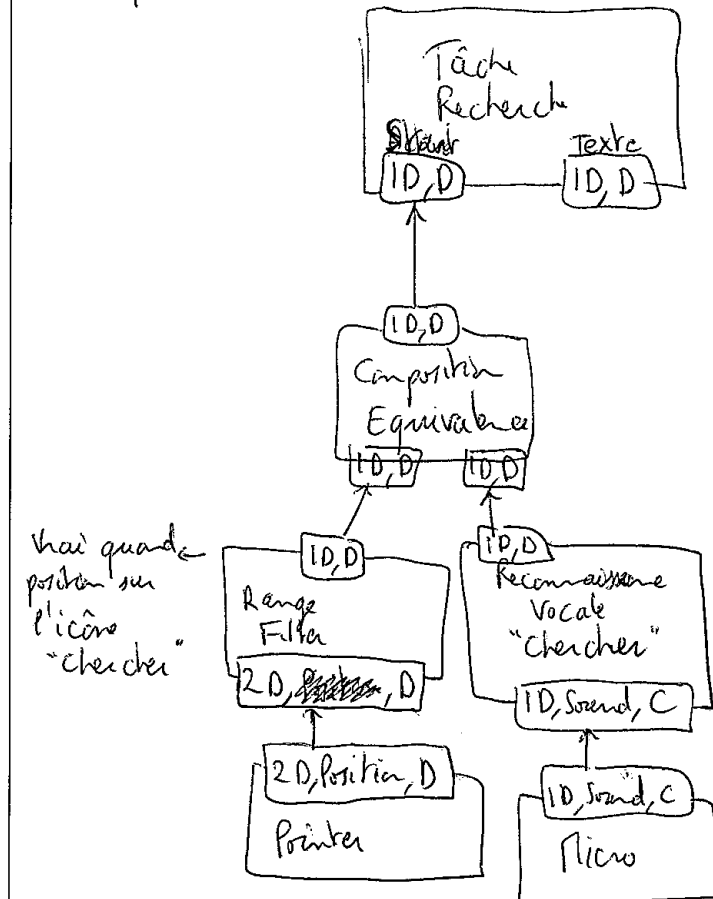 Tâche
Recherche
Texte
1D, D
1D, D
1D, D
Composition
Equivalence
1D, D
1D, D
Vrai quand
position sur
l'icône
"Chercher"
1D, D
Range
Filter
2D, , D
2D, Position, D
Pointer
1D, D
Reconnaissance
Vocale
"Chercher"
1D, Sound, C
1D, Sound, C
Micro